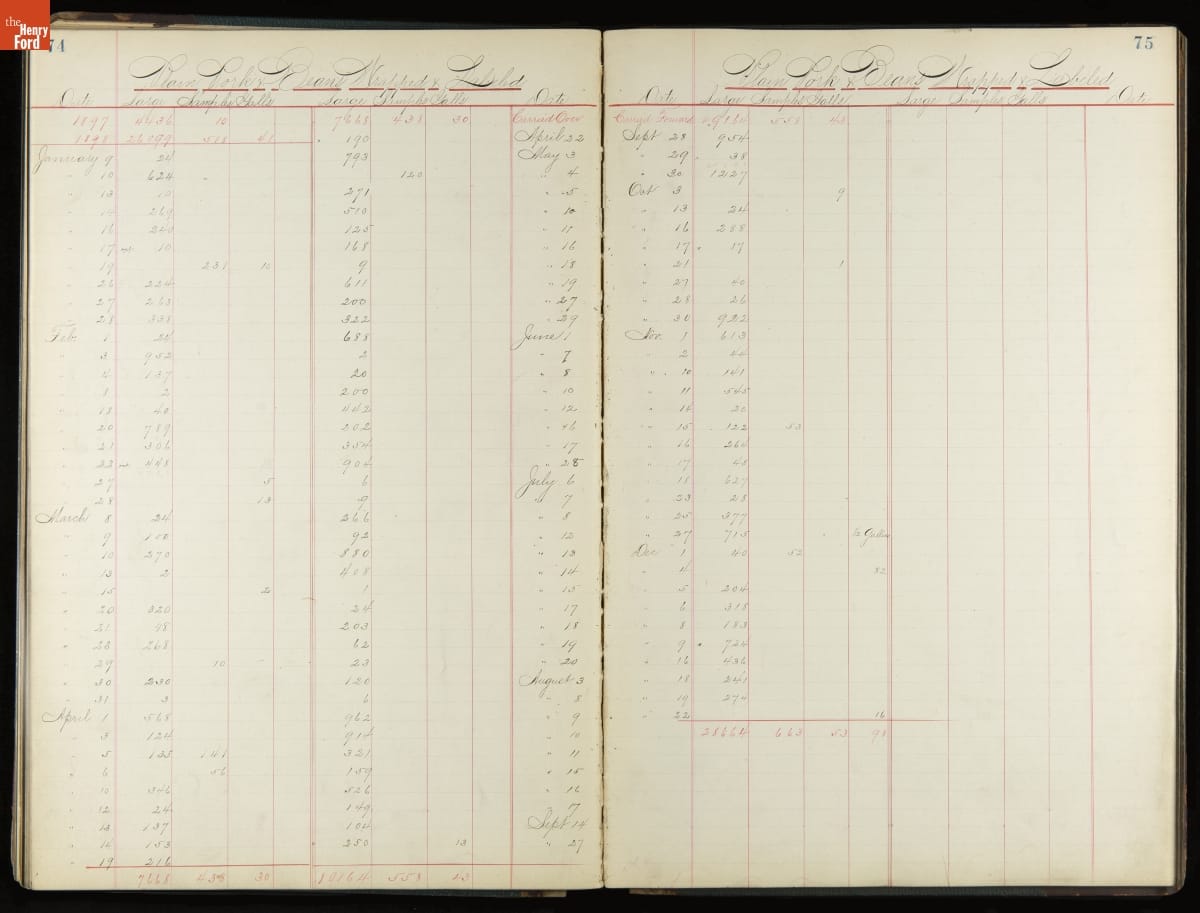 the Henry Ford
74
Plain Pork & Beans Wrapped & Labeled
Date Large Samples Galls Large Samples Galls Date
1897 4436 10 7668 438 30 Carried Over
1898 26099 518 41 190 April 22
January 9 24 793 May 3
" 10 624 120 " 4
" 13 271 " 5
" 14 269 510 " 10
" 16 240 125 " 11
" 17 10 168 " 16
" 19 231 10 9 " 18
" 26 224 611 " 19
" 27 263 200 " 27
" 28 338 322 " 29
Feb. 1 24 688 June 1
" 3 952 2 " 7
" 4 137 20 " 8
" 8 2 200 " 10
" 18 40 442 " 12
" 20 789 202 " 16
" 21 306 354 " 17
" 22 448 904 " 28
" 27 5 6 July 6
" 28 13 9 " 7
March 8 24 266 " 8
" 9 100 92 " 12
" 10 270 880 " 13
" 13 2 408 " 14
" 15 2 1 " 15
" 20 320 24 " 17
" 21 48 203 " 18
" 28 268 62 " 19
" 29 10 23 " 20
" 30 230 120 August 3
" 31 3 6 " 8
April 1 568 962 " 9
" 3 124 914 " 10
" 5 135 141 321 " 11
" 6 56 159 " 15
" 10 346 526 " 16
" 12 24 149 " 17
" 13 137 104 Sept 14
" 14 153 250 13 " 27
" 19 216
7668 438 30 558 43
75
Plain Pork & Beans Wrapped & Labeled
Date Large Samples Galls Large Samples Galls Date
Carried Forward 558 43
Sept 28 954
" 29 38
" 30 1227
Oct 3 9
" 13 24
" 16 288
" 17 17
" 21 1
" 27 40
" 28 26
" 30 922
Nov. 1 613
" 2 44
" 10 141
" 11 545
" 14 20
" 15 122 53
" 16 264
" 17 48
" 18 627
" 23 28
" 25 377
" 27 715 1/2 Gallon
Dec 1 40 52
" 4 82
" 5 204
" 6 318
" 8 183
" 9 724
" 16 436
" 18 241
" 19 274
" 22 16
28664 663 53 98